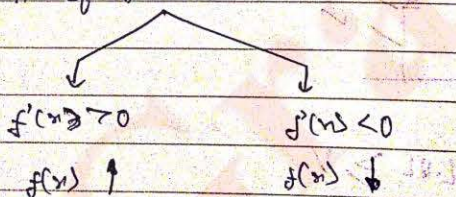 f'(x) > 0 f'(x) < 0
f(x) ↑ f(x) ↓